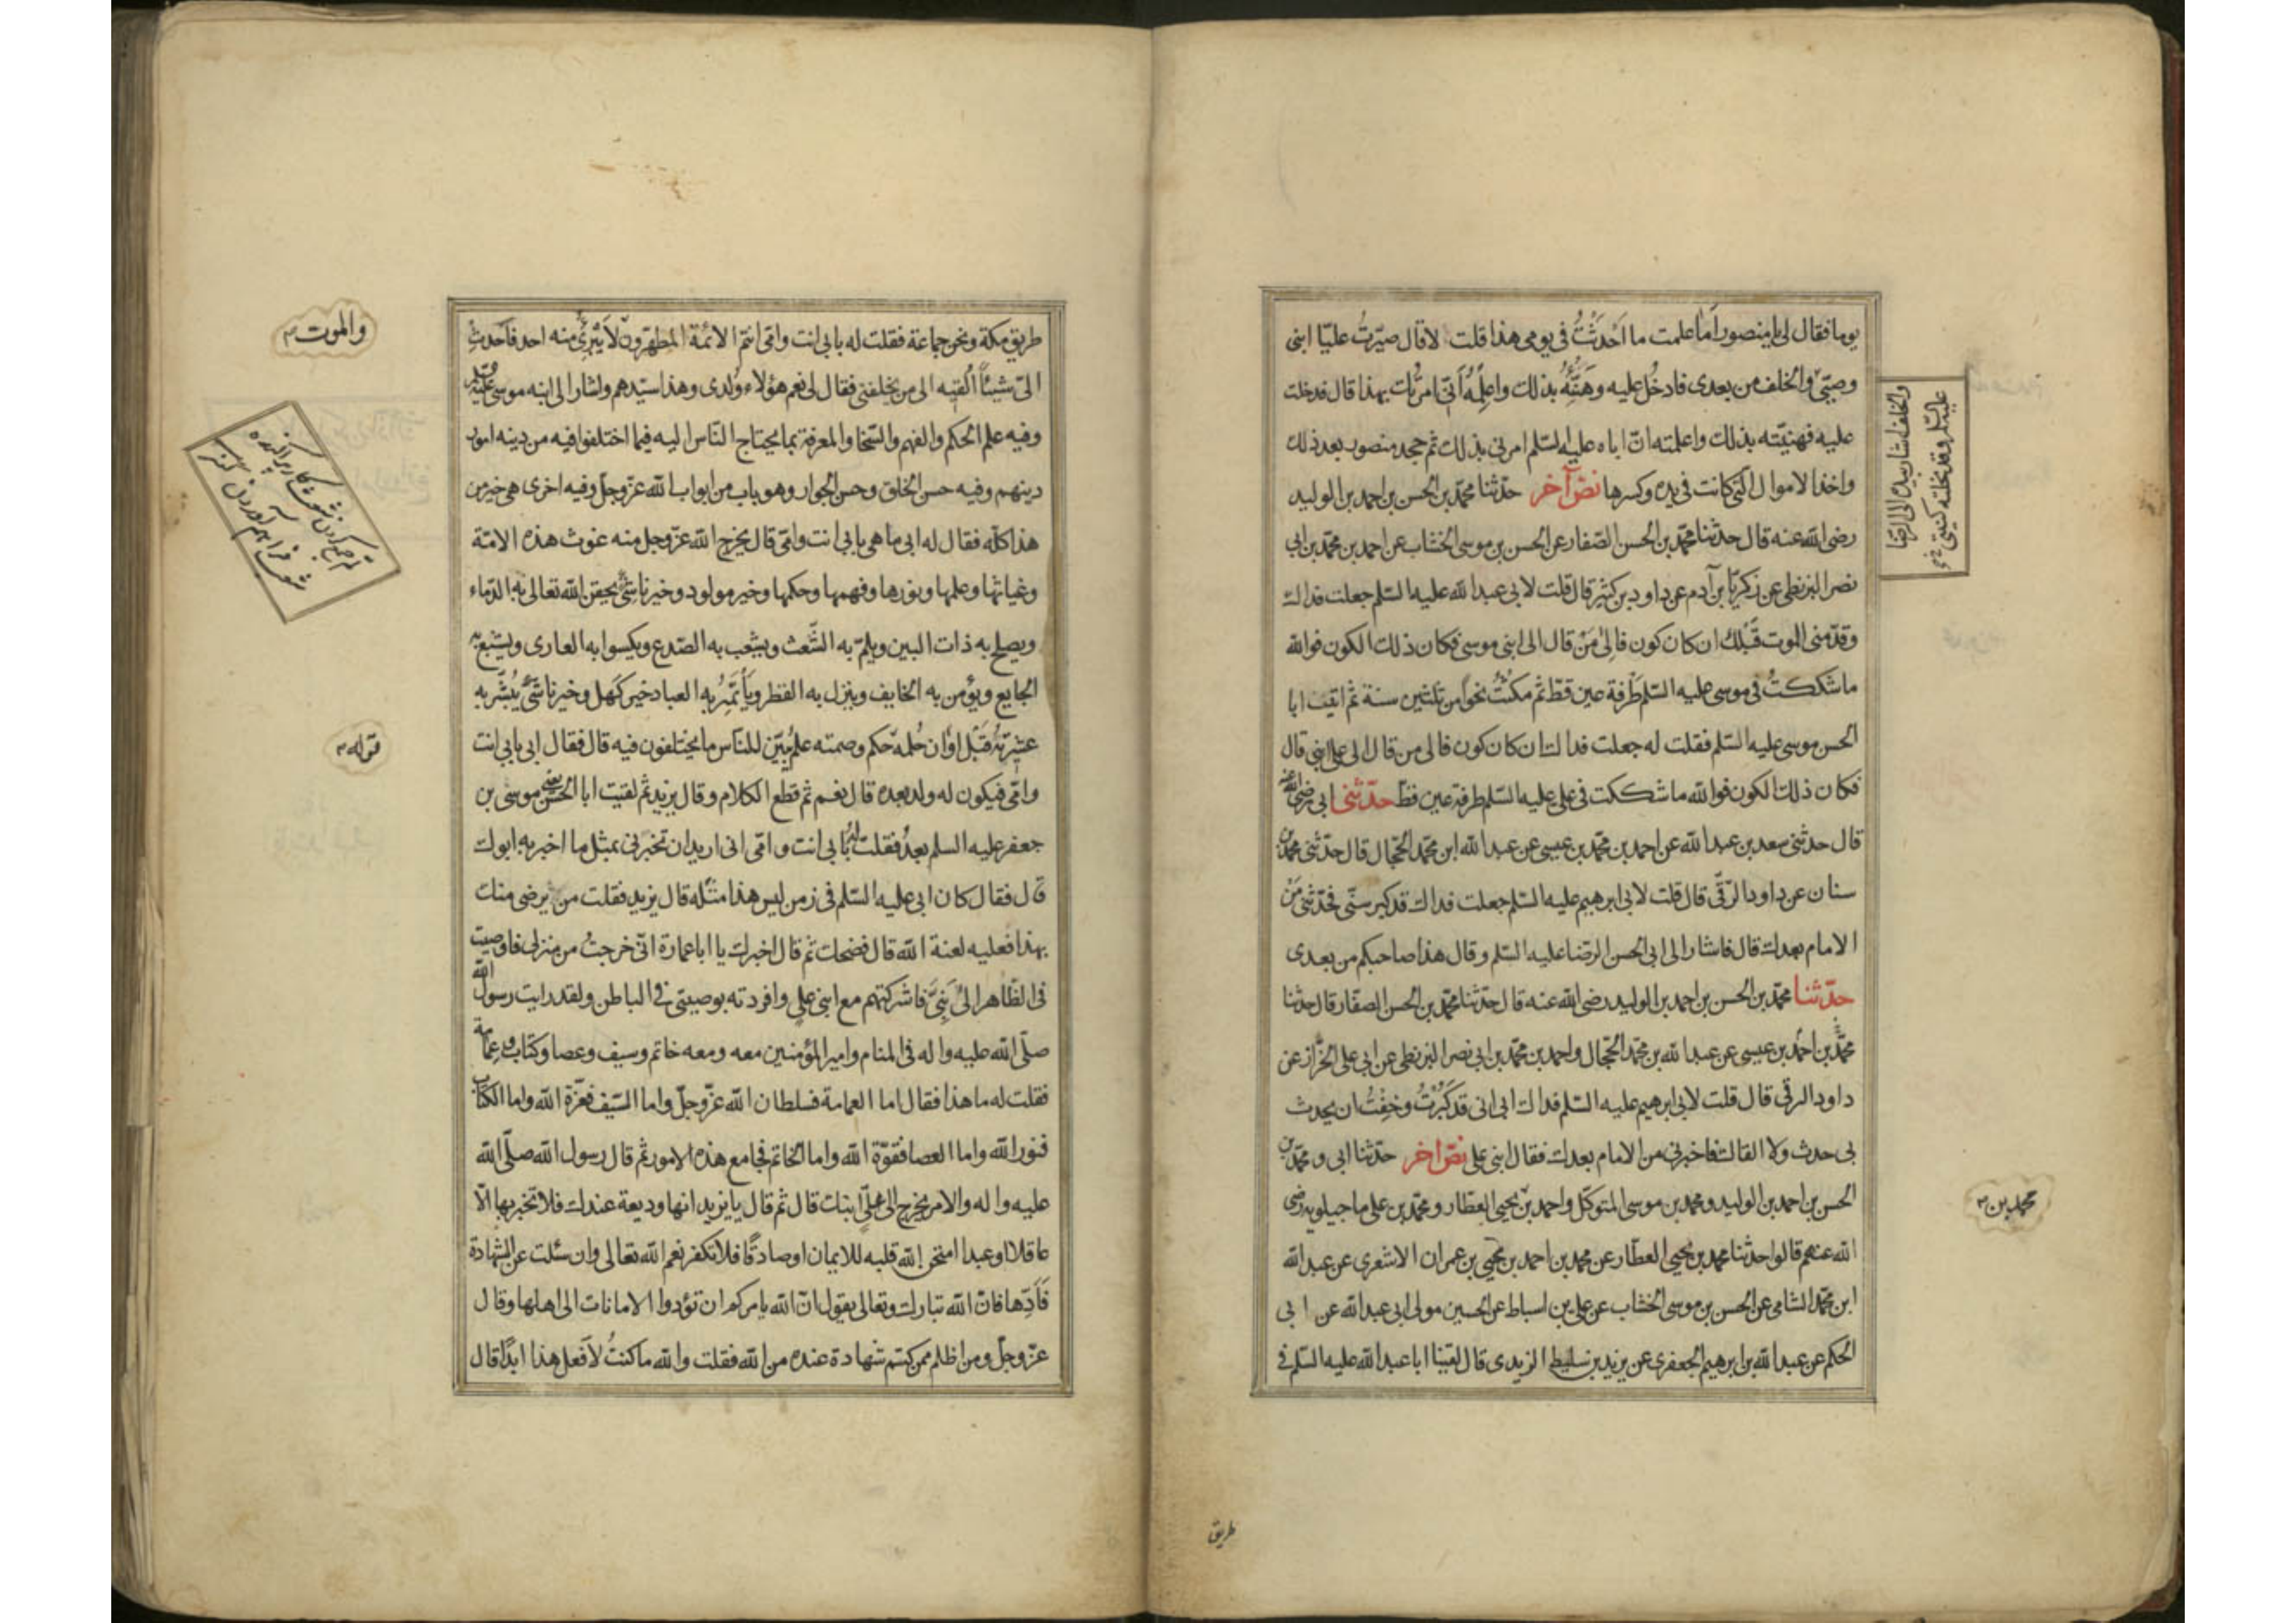 يوما فقال لی يا منصور اَما علمت ما اَحْدَثْتُ فی يومی هذا قلت لا قال صيّرتُ عليّا ابنی
وصيّی والخلف من بعدی فادخُل عليه وهَنِّهُ بذلك واعلِمهُ اَنّی امرتك بهذا قال فدخلت
عليه فهنيّته بذلك واعلمته انّ اباه عليه السّلم امرنی بذلك ثم جحد منصور بعد ذلك
واخذ الاموال الّتی كانت فی يده وكسرها نصّ آخر حدّثنا محمّد بن الحسن بن احمد بن الوليد
رضی الله عنه قال حدّثنا محمّد بن الحسن الصّفار عن الحسن بن موسی الخشاب عن احمد بن محمّد بن ابی
نصر البزنطی عن زكريّا بن آدم عن داود بن كثير قال قلت لابی عبدالله عليه السّلم جعلت فداك
وقدّمنی الموت قَبْلك ان كان كون فاِلیٰ مَنْ قال الی ابنی موسی فكان ذلك الكون فوالله
ما شككتُ فی موسی عليه السّلم طَرْفة عين قطّ ثم مكثْتُ نحوًا من ثلثين سنة ثم اتيت ابا
الحسن موسی عليه السّلم فقلت له جعلت فداك ان كان كون فالی من قال الی علیّ ابنی قال
فكان ذلك الكون فوالله ما شككت فی علی عليه السّلم طرفة عين قطّ حدّثنی ابی رضی الله عنه
قال حدثنی سعد بن عبدالله عن احمد بن محمّد بن عيسی عن عبدالله ابن محمّد الحجّال قال حدّثنی محمّد بن
سنان عن داود الرّقّی قال قلت لابی ابرهيم عليه السّلم جعلت فداك قد كبر سنّی فحدّثنی مَنْ
الامام بعدك قال فاشار الی ابی الحسن الرضا عليه السّلم وقال هذا صاحبكم من بعدی
حدّثنا محمّد بن الحسن بن احمد بن الوليد رضی الله عنه قال حدّثنا محمّد بن الحسن الصفّار قال حدثنا
محمّد بن احمد بن عيسی عن عبدالله بن محمّد الحجّال واحمد بن محمّد بن ابی نصر البزنطی عن ابی علی الخزّاز عن
داود الرقی قال قلت لابی ابرهيم عليه السّلم فداك ابی انی قد كَبُرْتُ وخِفْتُ ان يحدث
بی حدث ولا القاك فاخبرنی من الامام بعدك فقال ابنی علی نصّ اخر حدّثنا ابی و محمّد بن
الحسن بن احمد بن الوليد ومحمد بن موسی المتوكّل واحمد بن يحيی العطّار ومحمّد بن علی ماجيلويه رضی
الله عنهم قالوا حدثنا محمد بن يحيی العطار عن محمد بن احمد بن يحيی بن عمران الاشعری عن عبدالله
ابن محمّد الشامی عن الحسن بن موسی الخشاب عن علی بن اسباط عن الحسين مولی ابی عبدالله عن ابی
الحكم عن عبدالله بن ابرهيم الجعفری عن يزيد بن سليط الزيدی قال لقينا ابا عبدالله عليه السّلم فی
والخلف اشار بيده الی الرضا
عليه السّلم وقد نحلته كنيتی
محمد بن
طريق
طريق مكّة ونحن جماعة فقلت له بابی انت وامّی انتم الائمّة المطهّرون لا يَبْریٰ منه احد فاَحْدِثْ
الیّ شيئاً اُلقيه الی من يخلفنی فقال لی نعم هؤلاء وُلدی وهذا سيّدهم واشار الی ابنه موسی عليه السلم
وفيه علم الحكم والفهم والسّخا والمعرفة بما يحتاج النّاس اليه فيما اختلفوا فيه من دينه امور
دينهم وفيه حسن الخلق وحسن الجوار وهو باب من ابواب الله عزّوجلّ وفيه اخری هی خير من
هذا كلّه فقال له ابی ما هی بابی انت وامّی قال يخرج الله عزّوجل منه غوث هذه الامّة
وغياثها وعلمها ونورها وفهمها وحكمها وخير مولود وخير ناشیٔ يحقن الله تعالی به الدّماء
ويصلح به ذات البين ويلمّ به الشَّعث ويشعب به الصّدع ويكسوا به العاری ويشبع به
الجايع ويؤمن به الخايف وينزل به القطر ويأتمر به العباد خير كهل وخير ناشیٔ يُبشّر به
عشيرته قَبْل اوٰان حُلمه حكم وصمته علم يُبيّن للنّاس ما يختلفون فيه قال فقال ابی بابی انت
وامّی فيكون له ولد بعده قال نعم ثم قطع الكلام وقال يزيد ثم لقيت ابا الحسن يعنی موسی بن
جعفر عليه السلم بعدُ فقلت له بابی انت وامّی انی اريد ان تخبرنی بمثل ما اخبر به ابوك
قال فقال كان ابی عليه السّلم فی زمن ليس هذا مثله قال يزيد فقلت من يرضی منك
بهذا فعليه لعنة الله قال فضحك ثم قال اخبرك يا ابا عمارة انّی خرجتُ من منزلی فاوصيت
فی الظّاهر الیٰ بَنِیَّ فاشركتهم مع ابنی علی وافردته بوصيتی فی الباطن ولقد رايت رسول الله
صلّی الله عليه واله فی المنام وامير المؤمنين معه ومعه خاتم وسيف وعصا وكتاب وعِمٰامة
فقلت له ما هذا فقال اما العمامة فسلطان الله عزّوجلّ واما السّيف فعزّة الله واما الكتاب
فنور الله واما العصا فقوّة الله واما الخاتم فجامع هذه الامور ثم قال رسول الله صلّی الله
عليه واله والامر يخرج الی علیّ ابنك قال ثم قال يا يزيد انها وديعة عندك فلا تخبر بها الّا
عاقلا او عبدا امتحن الله قلبه للايمان او صادقًا فلا تكفر نعم الله تعالی وان سئلت عن الشهادة
فَاَدِّها فانّ الله تبارك وتعالی يقول انّ الله يامركم ان تؤدوا الامانات الی اهلها وقال
عزّوجلّ ومن اظلم ممن كتم شهادة عنده من الله فقلت والله ما كنتُ لاَفعل هذا ابدًا قال
والموت
قوله